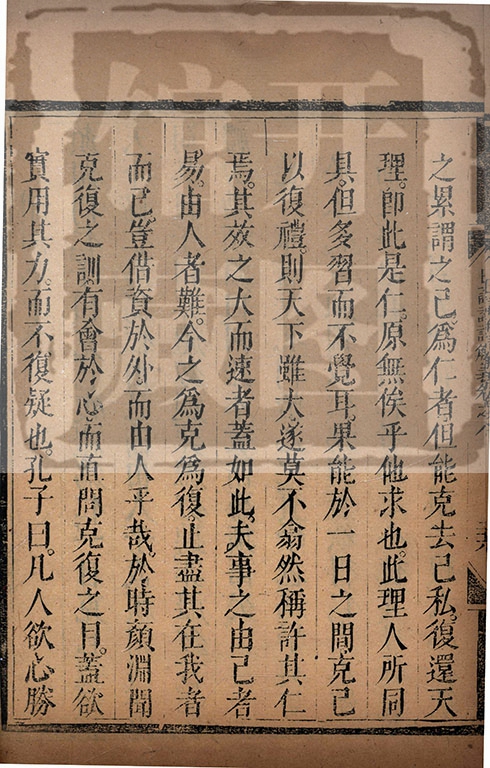 之累謂之己爲仁者但能克去己私復還天
理。卽此是仁。原無俟乎他求也。此理人所同
具。但多習而不覺耳。果能於一日之間克己
以復禮。則天下雖大遂莫不翕然稱許其仁
焉。其效之大而速者蓋如此。夫事之由己者
易。由人者難。今之爲克爲復。止盡其在我者
而己。豈借資於外。而由人乎哉。於時顏淵聞
克復之訓。有會於心。而直問克復之目。蓋欲
實用其力。而不復疑也。孔子曰。凡人欲心勝